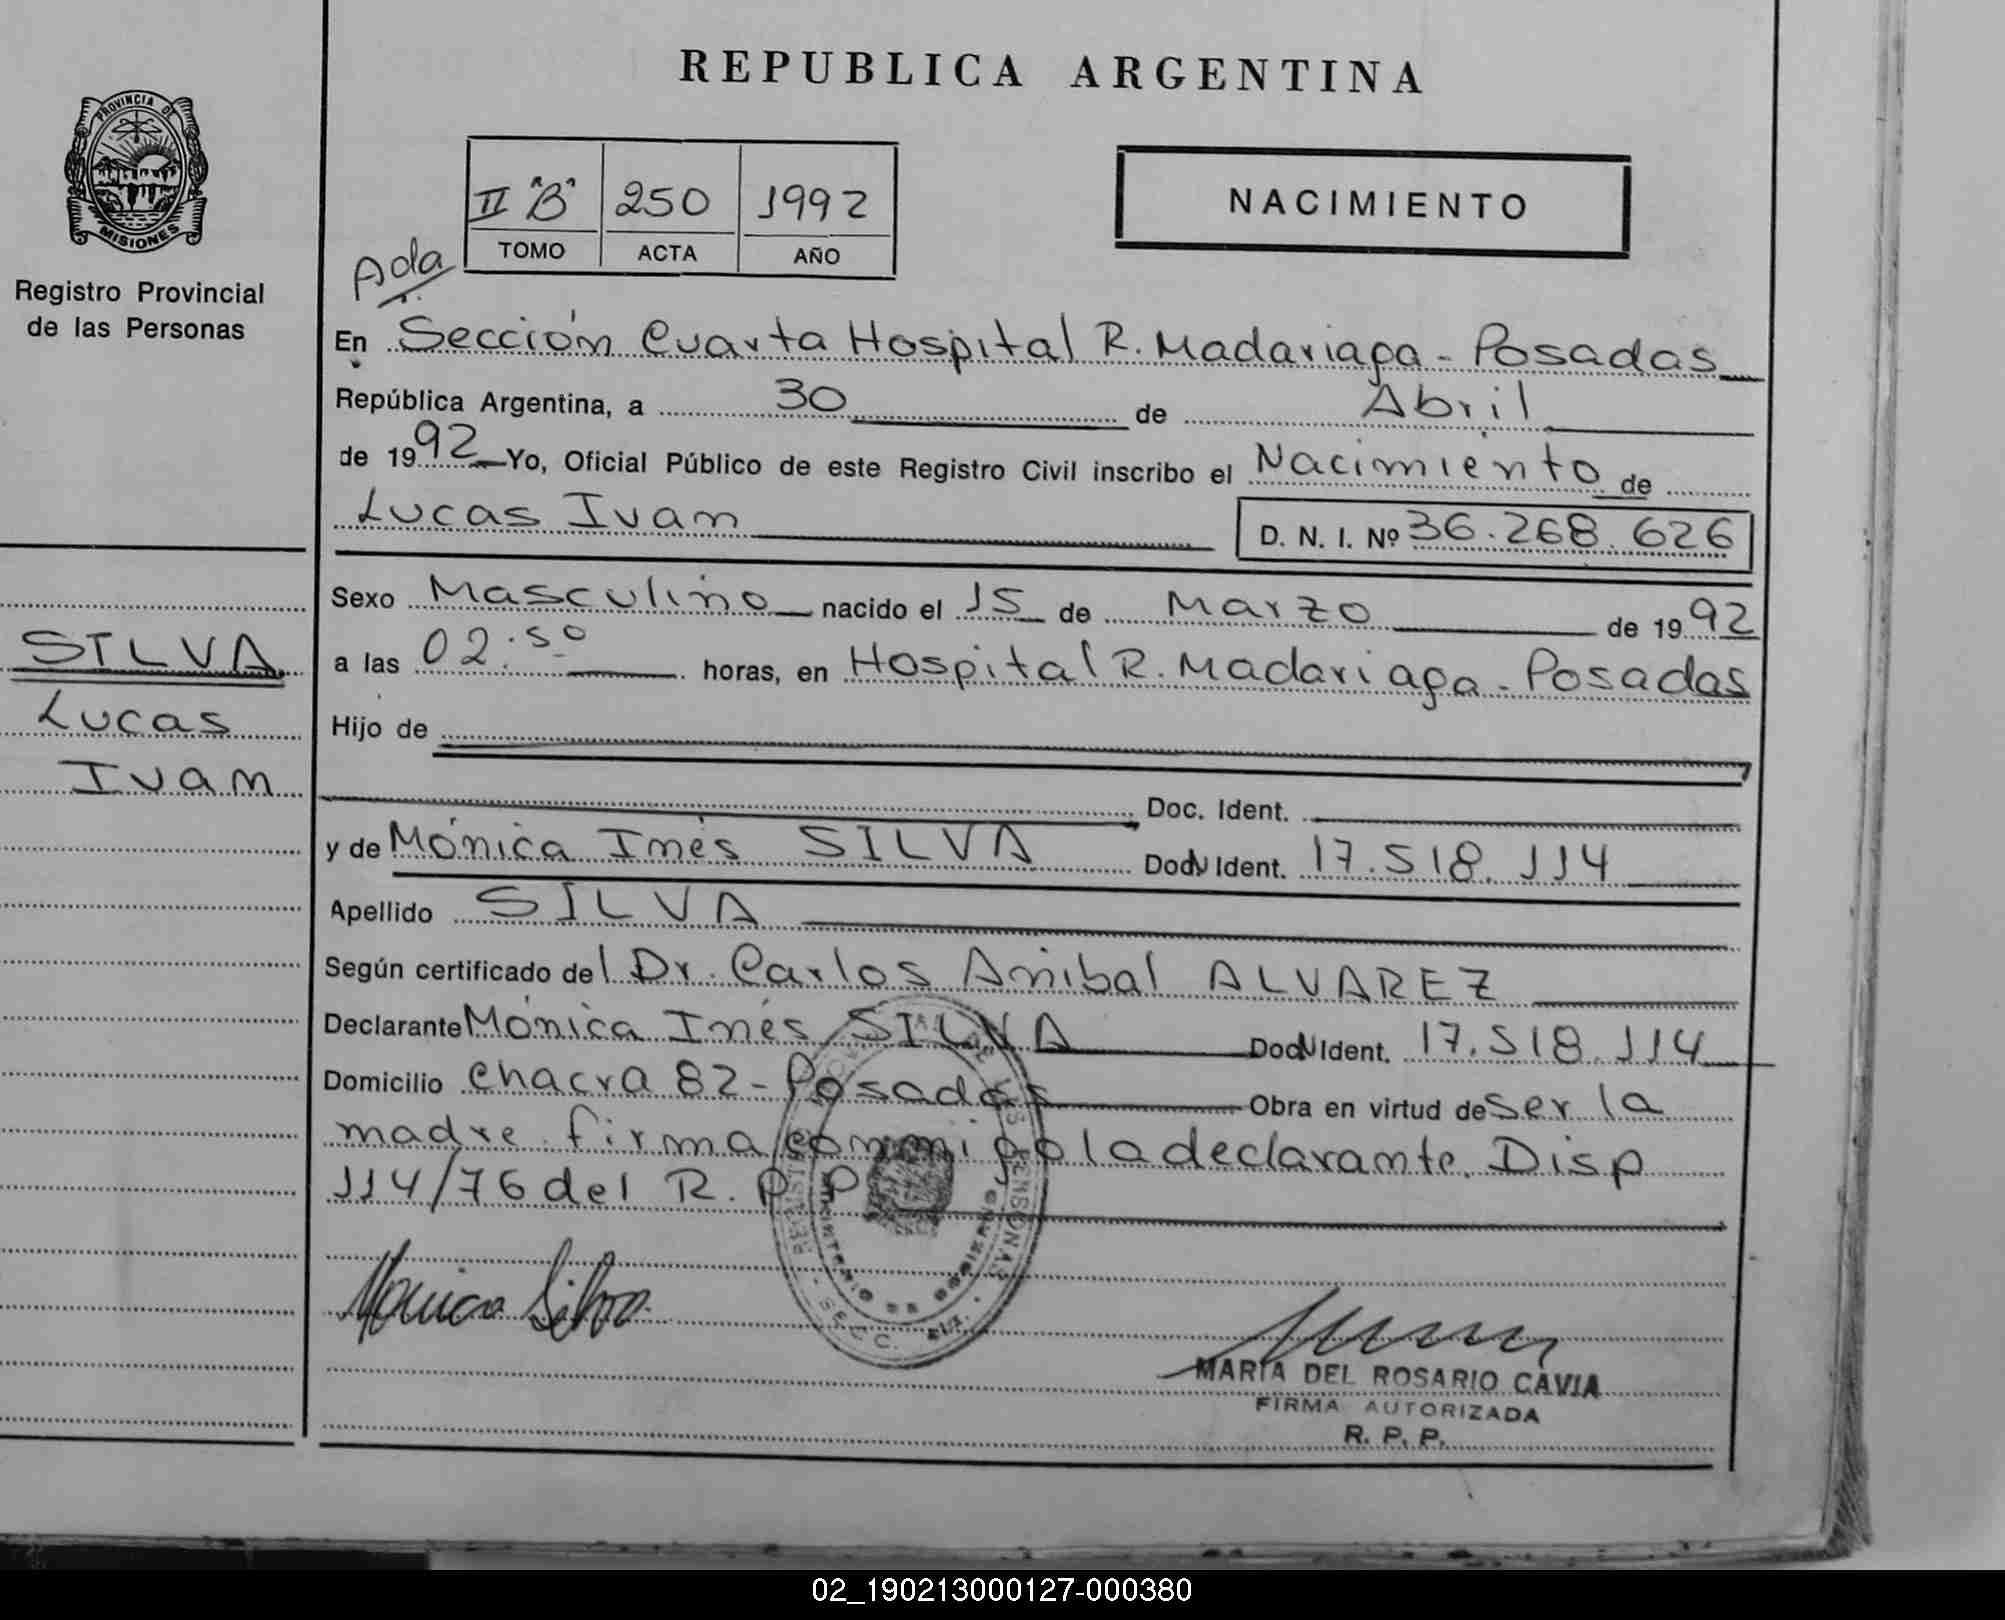 REPUBLICA ARGENTINA
PROVINCIA DE
MISIONES
Registro Provincial
de las Personas
II "B" 250 1992
TOMO ACTA AÑO
NACIMIENTO
Ada
En Sección Cuarta Hospital R. Madariaga - Posadas
República Argentina, a 30 de Abril
de 1992 Yo, Oficial Público de este Registro Civil inscribo el Nacimiento de
Lucas Ivan D. N. I. Nº 36.268.626
Sexo Masculino nacido el 15 de Marzo de 1992
a las 02:50 horas, en Hospital R. Madariaga - Posadas
Hijo de
Doc. Ident.
y de Mónica Inés SILVA Ident. 17.518.114
Apellido SILVA
Según certificado del Dr. Carlos Anibal ALVAREZ
Declarante Mónica Inés SILVA Ident. 17.518.114
Domicilio Chacra 82 - Posadas Obra en virtud de ser la
madre. firma conmigo la declarante. Disp
114/76 del R. P. P
SILVA
Lucas
Ivan
Monica Silva
MARIA DEL ROSARIO CAVIA
FIRMA AUTORIZADA
R. P. P.
02_190213000127-000380